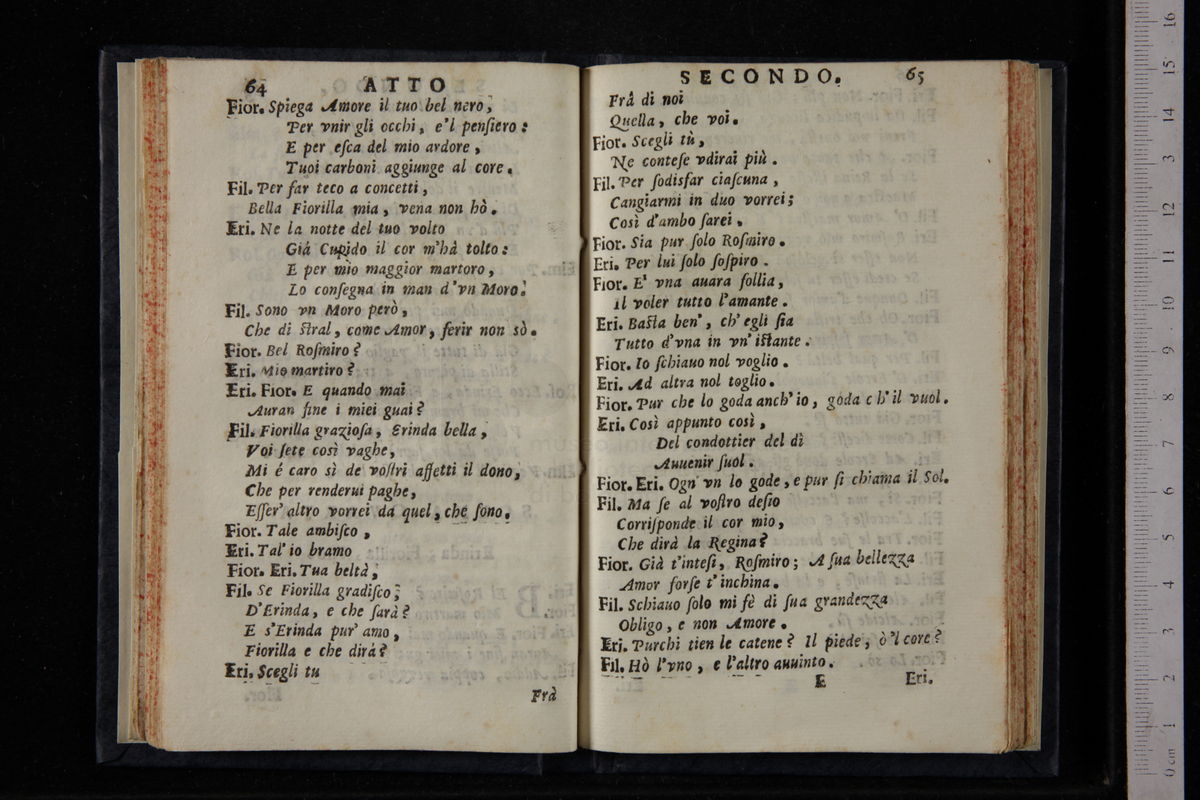 64 ATTO
Fior. Spiega Amore il tuo bel nero,
Per vnir gli occhi, e'l penſiero:
E per eſca del mio ardore,
Tuoi carboni aggiunge al core.
Fil. Per far teco a concetti,
Bella Fiorilla mia, vena non hò.
Eri. Ne la notte del tuo volto
Già Cupido il cor m'hà tolto:
E per mio maggior martoro,
Lo conſegna in man d'vn Moro.
Fil. Sono vn Moro però,
Che di ſtral, come Amor, ferir non sò.
Fior. Bel Roſmiro?
Eri. Mio martiro?
Eri. Fior. E quando mai
Auran fine i miei guai?
Fil. Fiorilla grazioſa, Erinda bella,
Voi ſete così vaghe,
Mi é caro sì de voſtri affetti il dono,
Che per renderui paghe,
Eſſer' altro vorrei da quel, che ſono.
Fior. Tale ambiſco,
Eri. Tal' io bramo
Fior. Eri. Tua beltà,
Fil. Se Fiorilla gradiſco;
D'Erinda, e che ſarà?
E s'Erinda pur' amo,
Fiorilla e che dirà?
Eri. Scegli tu
Frà
SECONDO. 65
Frà di noi
Quella, che voi.
Fior. Scegli tù,
Ne conteſe vdirai più.
Fil. Per ſodisfar ciaſcuna,
Cangiarmi in duo vorrei;
Così d'ambo ſarei.
Fior. Sia pur ſolo Roſmiro.
Eri. Per lui ſolo ſoſpiro.
Fior. E' vna auara follia,
Il voler tutto l'amante.
Eri. Baſta ben', ch' egli ſia
Tutto d'vna in vn' iſtante.
Fior. Io ſchiauo nol voglio.
Eri. Ad altra nol toglio.
Fior. Pur che lo goda anch' io, goda ch' il vuol.
Eri. Così appunto così,
Del condottier del dì
Auuenir ſuol.
Fior. Eri. Ogn' vn lo gode, e pur ſi chiama il Sol.
Fil. Ma ſe al voſtro deſio
Corriſponde il cor mio,
Che dirà la Regina?
Fior. Già t'inteſi, Roſmiro; A ſua bellezza
Amor forſe t'inchina.
Fil. Schiauo ſolo mi fè di ſua grandezza
Obligo, e non Amore.
Eri. Purchi tien le catene? Il piede, ò 'l core?
Fil. Hò l'vno, e l'altro auuinto.
E Eri.